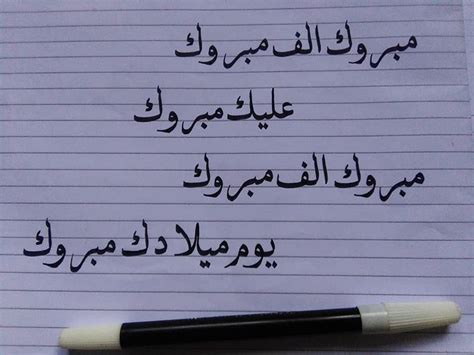 مبروك الف مبروك
عليك مبروك
مبروك الف مبروك
يوم ميلادك مبروك